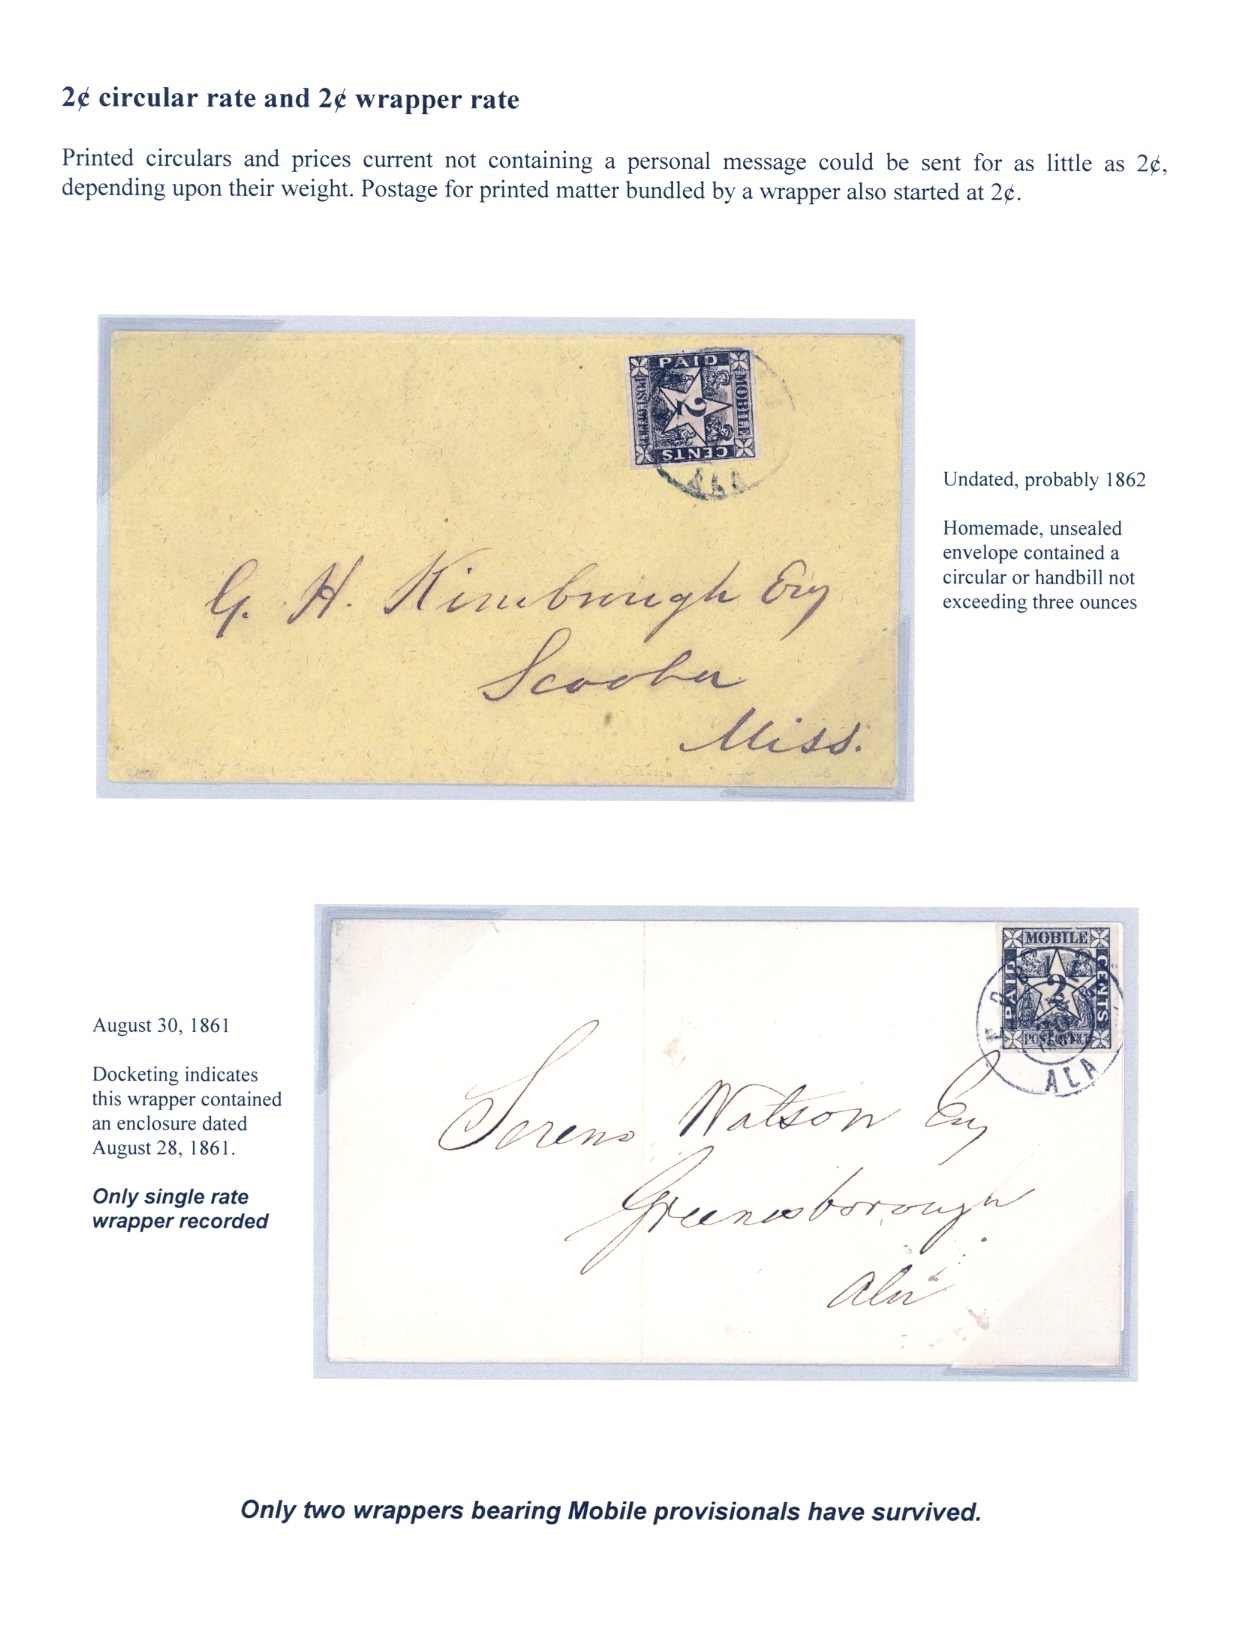 2¢ circular rate and 2¢ wrapper rate
Printed circulars and prices current not containing a personal message could be sent for as little as 2¢,
depending upon their weight. Postage for printed matter bundled by a wrapper also started at 2¢.
PAID
MOBILE
2
CENTS
ALA
G. H. Kimbrough Esq
Scooba
Miss.
Undated, probably 1862
Homemade, unsealed
envelope contained a
circular or handbill not
exceeding three ounces
MOBILE
PAID
2
CENTS
POST OFFICE
ALA
Sereno Watson Esq
Greensborough
Ala
August 30, 1861
Docketing indicates
this wrapper contained
an enclosure dated
August 28, 1861.
Only single rate
wrapper recorded
Only two wrappers bearing Mobile provisionals have survived.